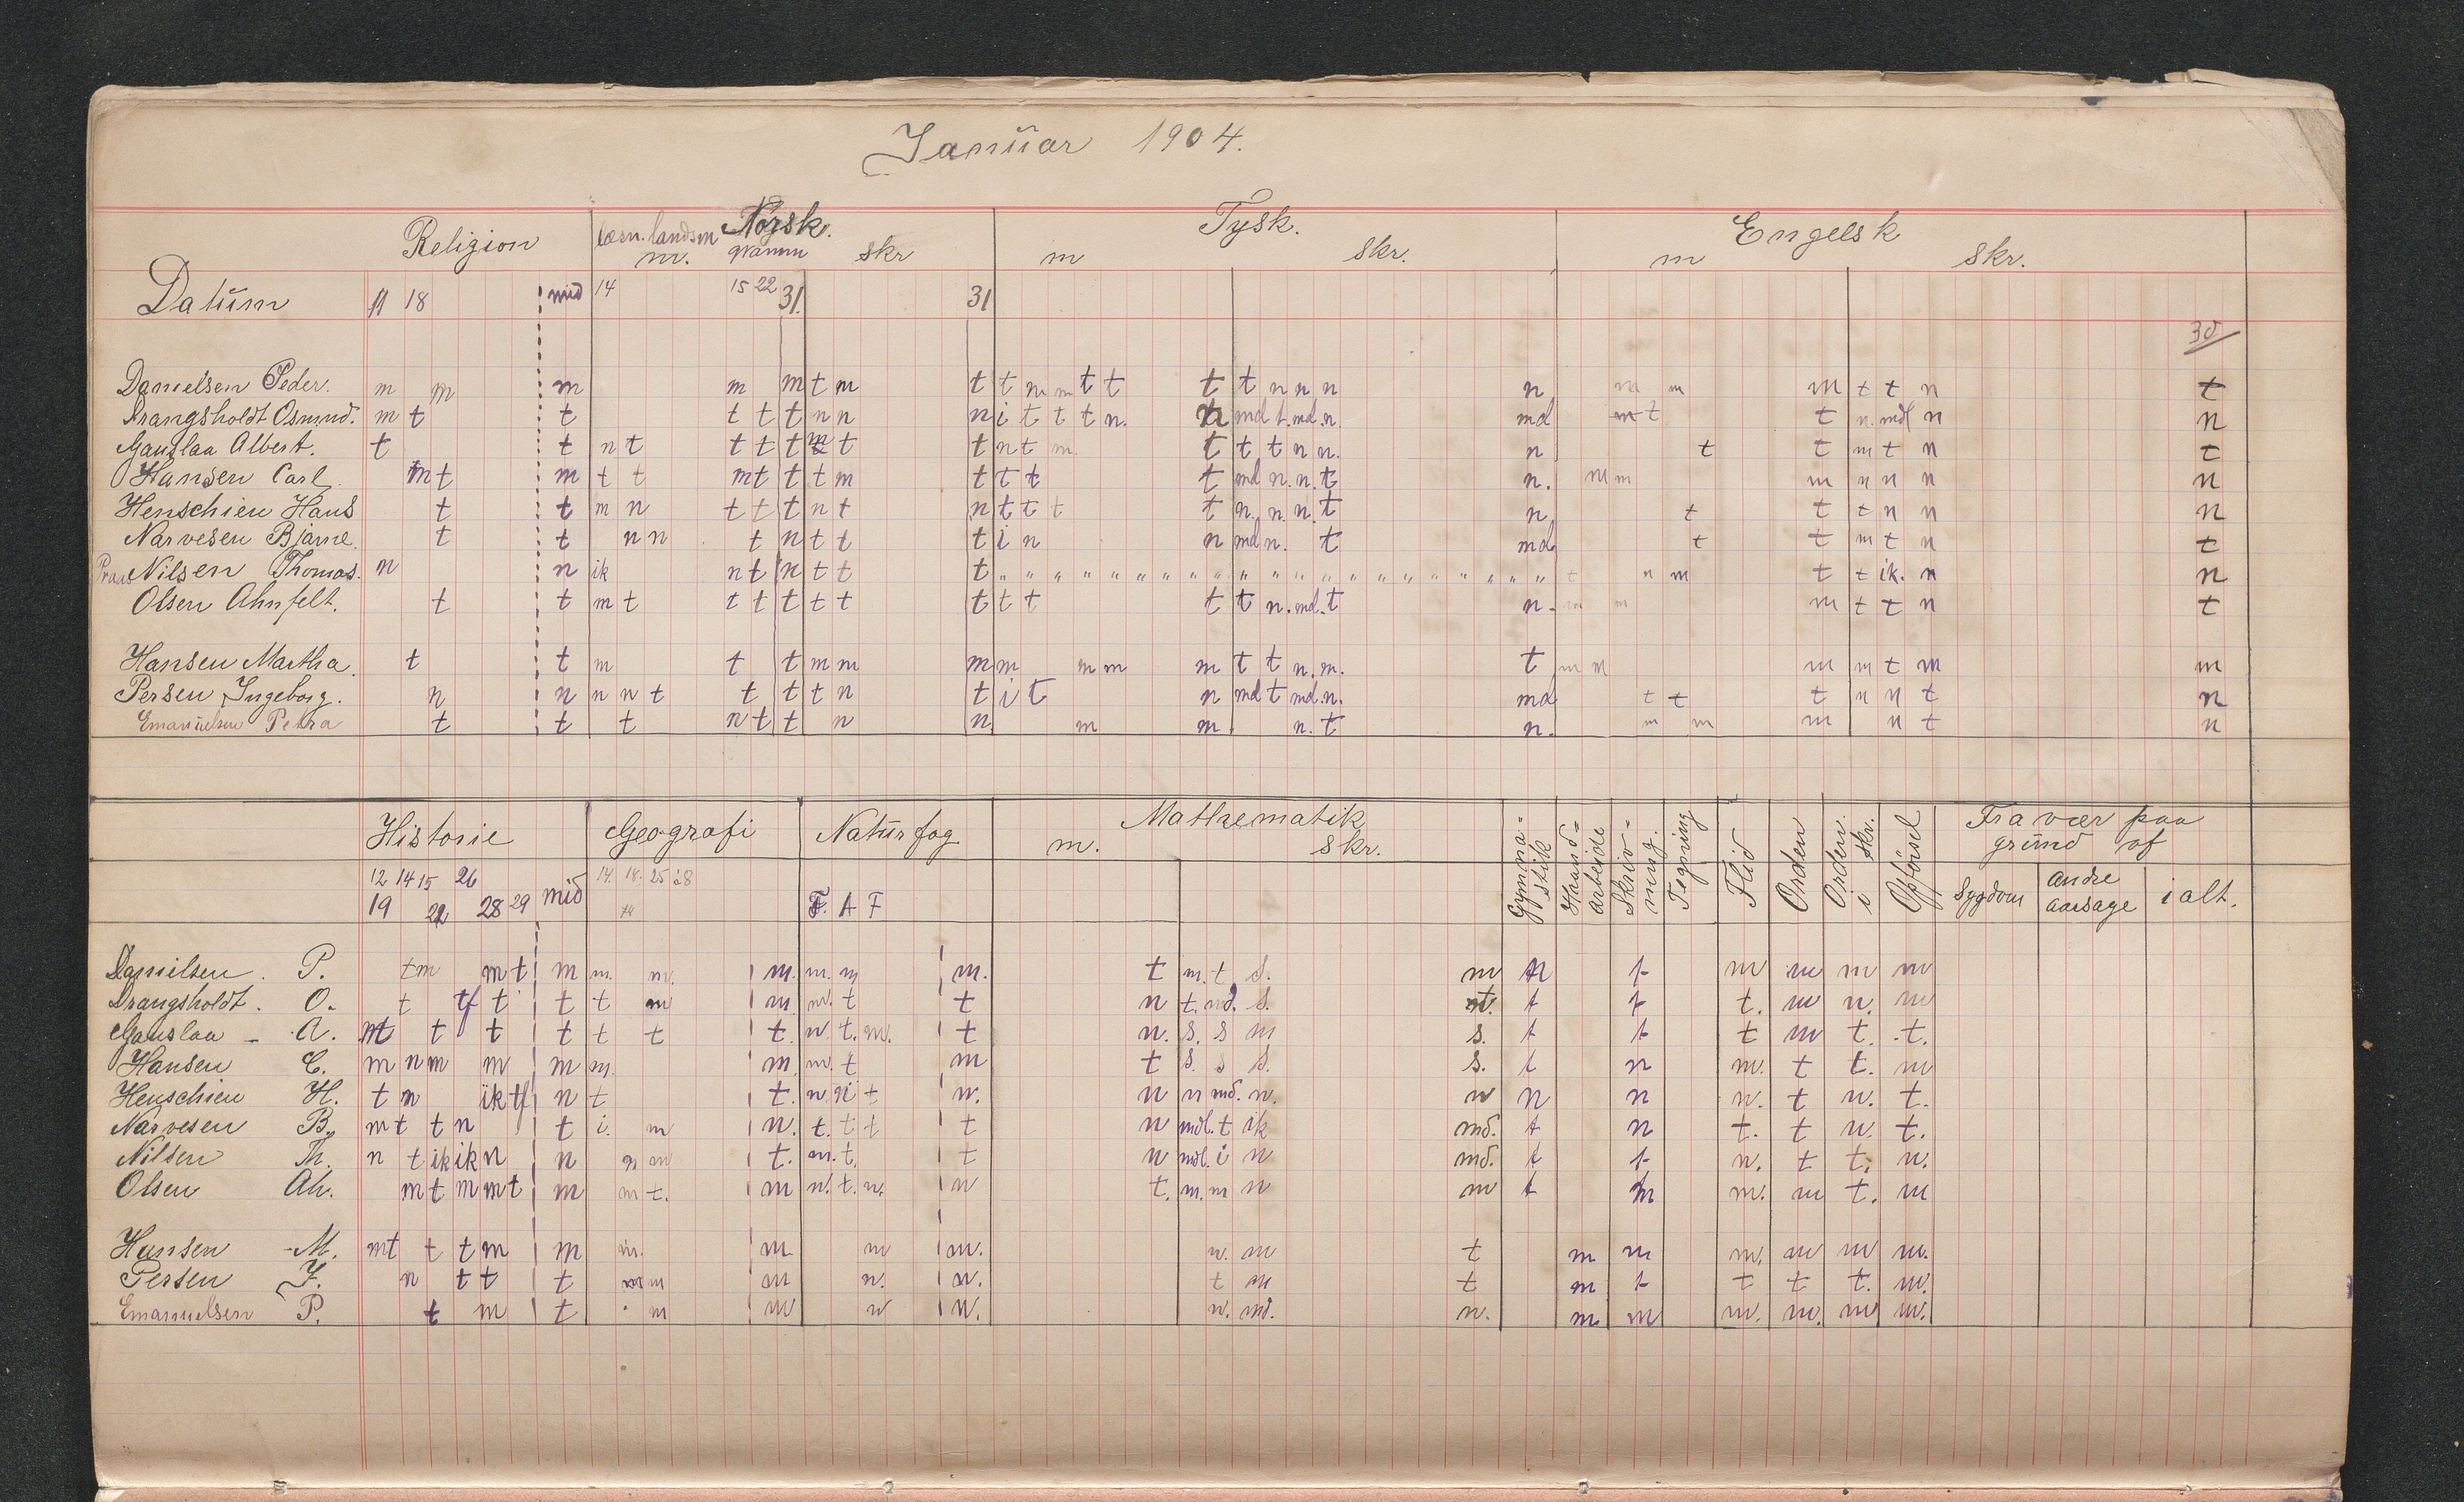 Januar 1904.
Religion Norsk. Tysk. Engelsk
landsm m. skr m skr. m skr.
Datum 11 18 mid 14 15 22 31. 31
Danielsen Peder. m m m m m t m t t n m t t t t n n n n m m m t t n t
Drangsholdt Osmund. m t t t t t n n n i t t t n. n md t. md. n. md m t t n. mdl n n
Gauslaa Albert. t t n t t t t m t t n t m. t t t n n. n t t m t n t
Hansen Carl. m t m t t m t t t m t t t t md n. n. t n. m m m n n n n
Henschien Hans t t m n t t t n t n t t t t n. n. n. t n t t t n n n
Narvesen Bjarne. t t n n t n t t t i n n md n. t md t t m t n t
Nilsen Thomas. n n ik n t n t t t " " " " " " " " " " " " " " " " " " " " t n m t t ik. n n
Olsen Ahnfelt. t t m t t t t t t t t t t t n. md. t n. m m m t t n t
Hansen Martha. t t m t t m m m m m m m t t n. m. t m m m m t m m
Persen Ingeborg. n n n n t t t t n t i t n md t md. n. md t t t n n t n
Emanuelsen Petra t t t n t t n n. m m n. t n. m m m n t n
Historie Geografi Naturfag Mathematik Gymnastik Haandarbeide Skrivning. Tegning Flid Orden Orden i skr. Opførsel Fravær paa grund af
m. skr.
12 14 15 26 14. 18. 25 28
19 22 28 29 mid F. A F Sygdom andre aarsage i alt.
Danielsen. P. t m m t m m. m. m. m. m m. t m. t s. m n t m m m m
Drangsholdt. O. t tf t t t m m m. t t n t. md. s. t. t t t. m n. m
Gauslaa - A. m t t t t t t t. n t. m. t n. s. s m s. t t t m t. t.
Hansen C. m n m m m m. m. m. t m t s. s s. s. t n m. t t. m
Henschien H. t n ik tf n t t. n n t n. n n md. n. n n n n. t n. t.
Narvesen B. m t t n t i. m n. t. t t t n mdl. t ik md. t n t. t n. t.
Nilsen Th. n t ik ik n n n m t. m. t. t n mdl. i n md. t t n. t t. n.
Olsen Ah. m t m m t m m t. m n. t. n. n t. m. m n m t m m. m t. m
Hansen M. m t t t m m m. m m m. n. m t m m m. m m m.
Persen J. n t t t m m n. n. t m t m t t t t. m.
Emanuelsen P. t m t m m n n. n. md. n. m m m. m. m m.